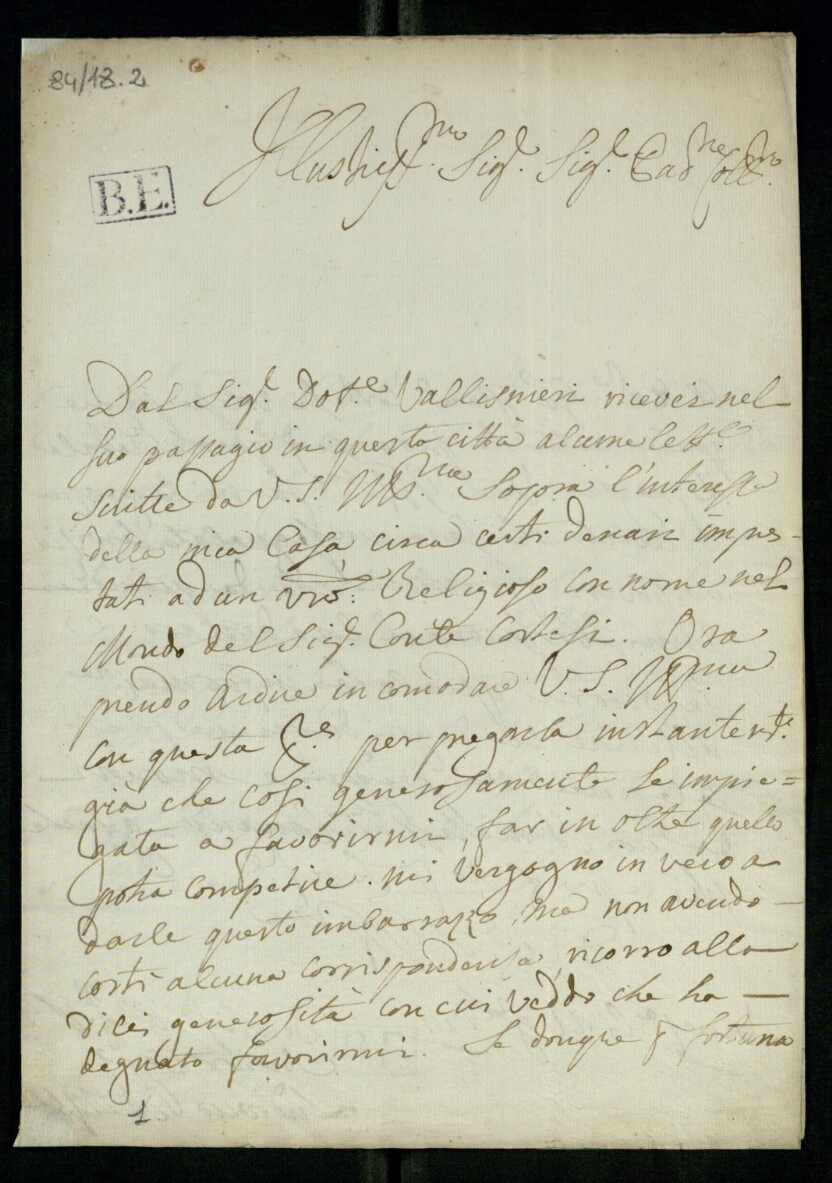 84/18.2
B.E.
Illustriss.mo Sig.r Sig.r Pad.ne Coll.mo
Dal Sig.r Dot.e Vallisnieri ricevei nel
suo passagio in questa città alcune lett.e
scritte da V. S. Ill.ma sopra l'interesse
della mia Casa circa certi denari impres-
tati ad un Religioso con nome nel
Mondo del Sig.r Conte Cortesi. Ora
prendo ardire incomodare V. S. Ill.ma
con questa per pregarla instantem.te
già che così generosamente se impie=
gata a favorirmi, far in oltre quello
potrà competire. mi vergogno in vero a
darle questo imbarrazzo, ma non avendo
costì alcuna corrispondenza, ricorro alla
di lei generosità con cui veddo che ha
degnato favorirmi. Se donque p fortuna
1